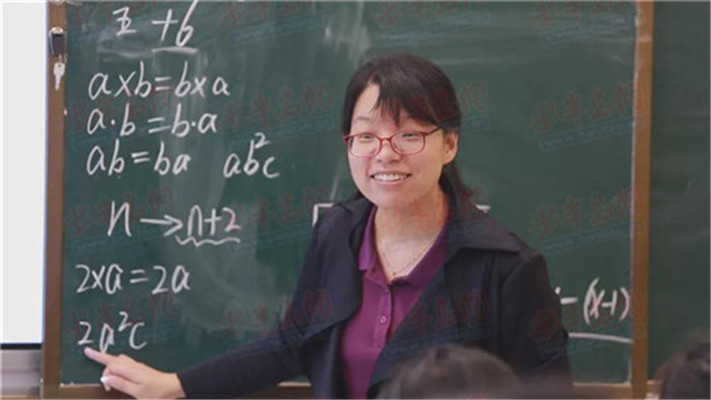 +6
a×b=b×a
a·b=b·a
ab=ba ab²c
n→n+2
2×a=2a
2a²c
-(x-1)